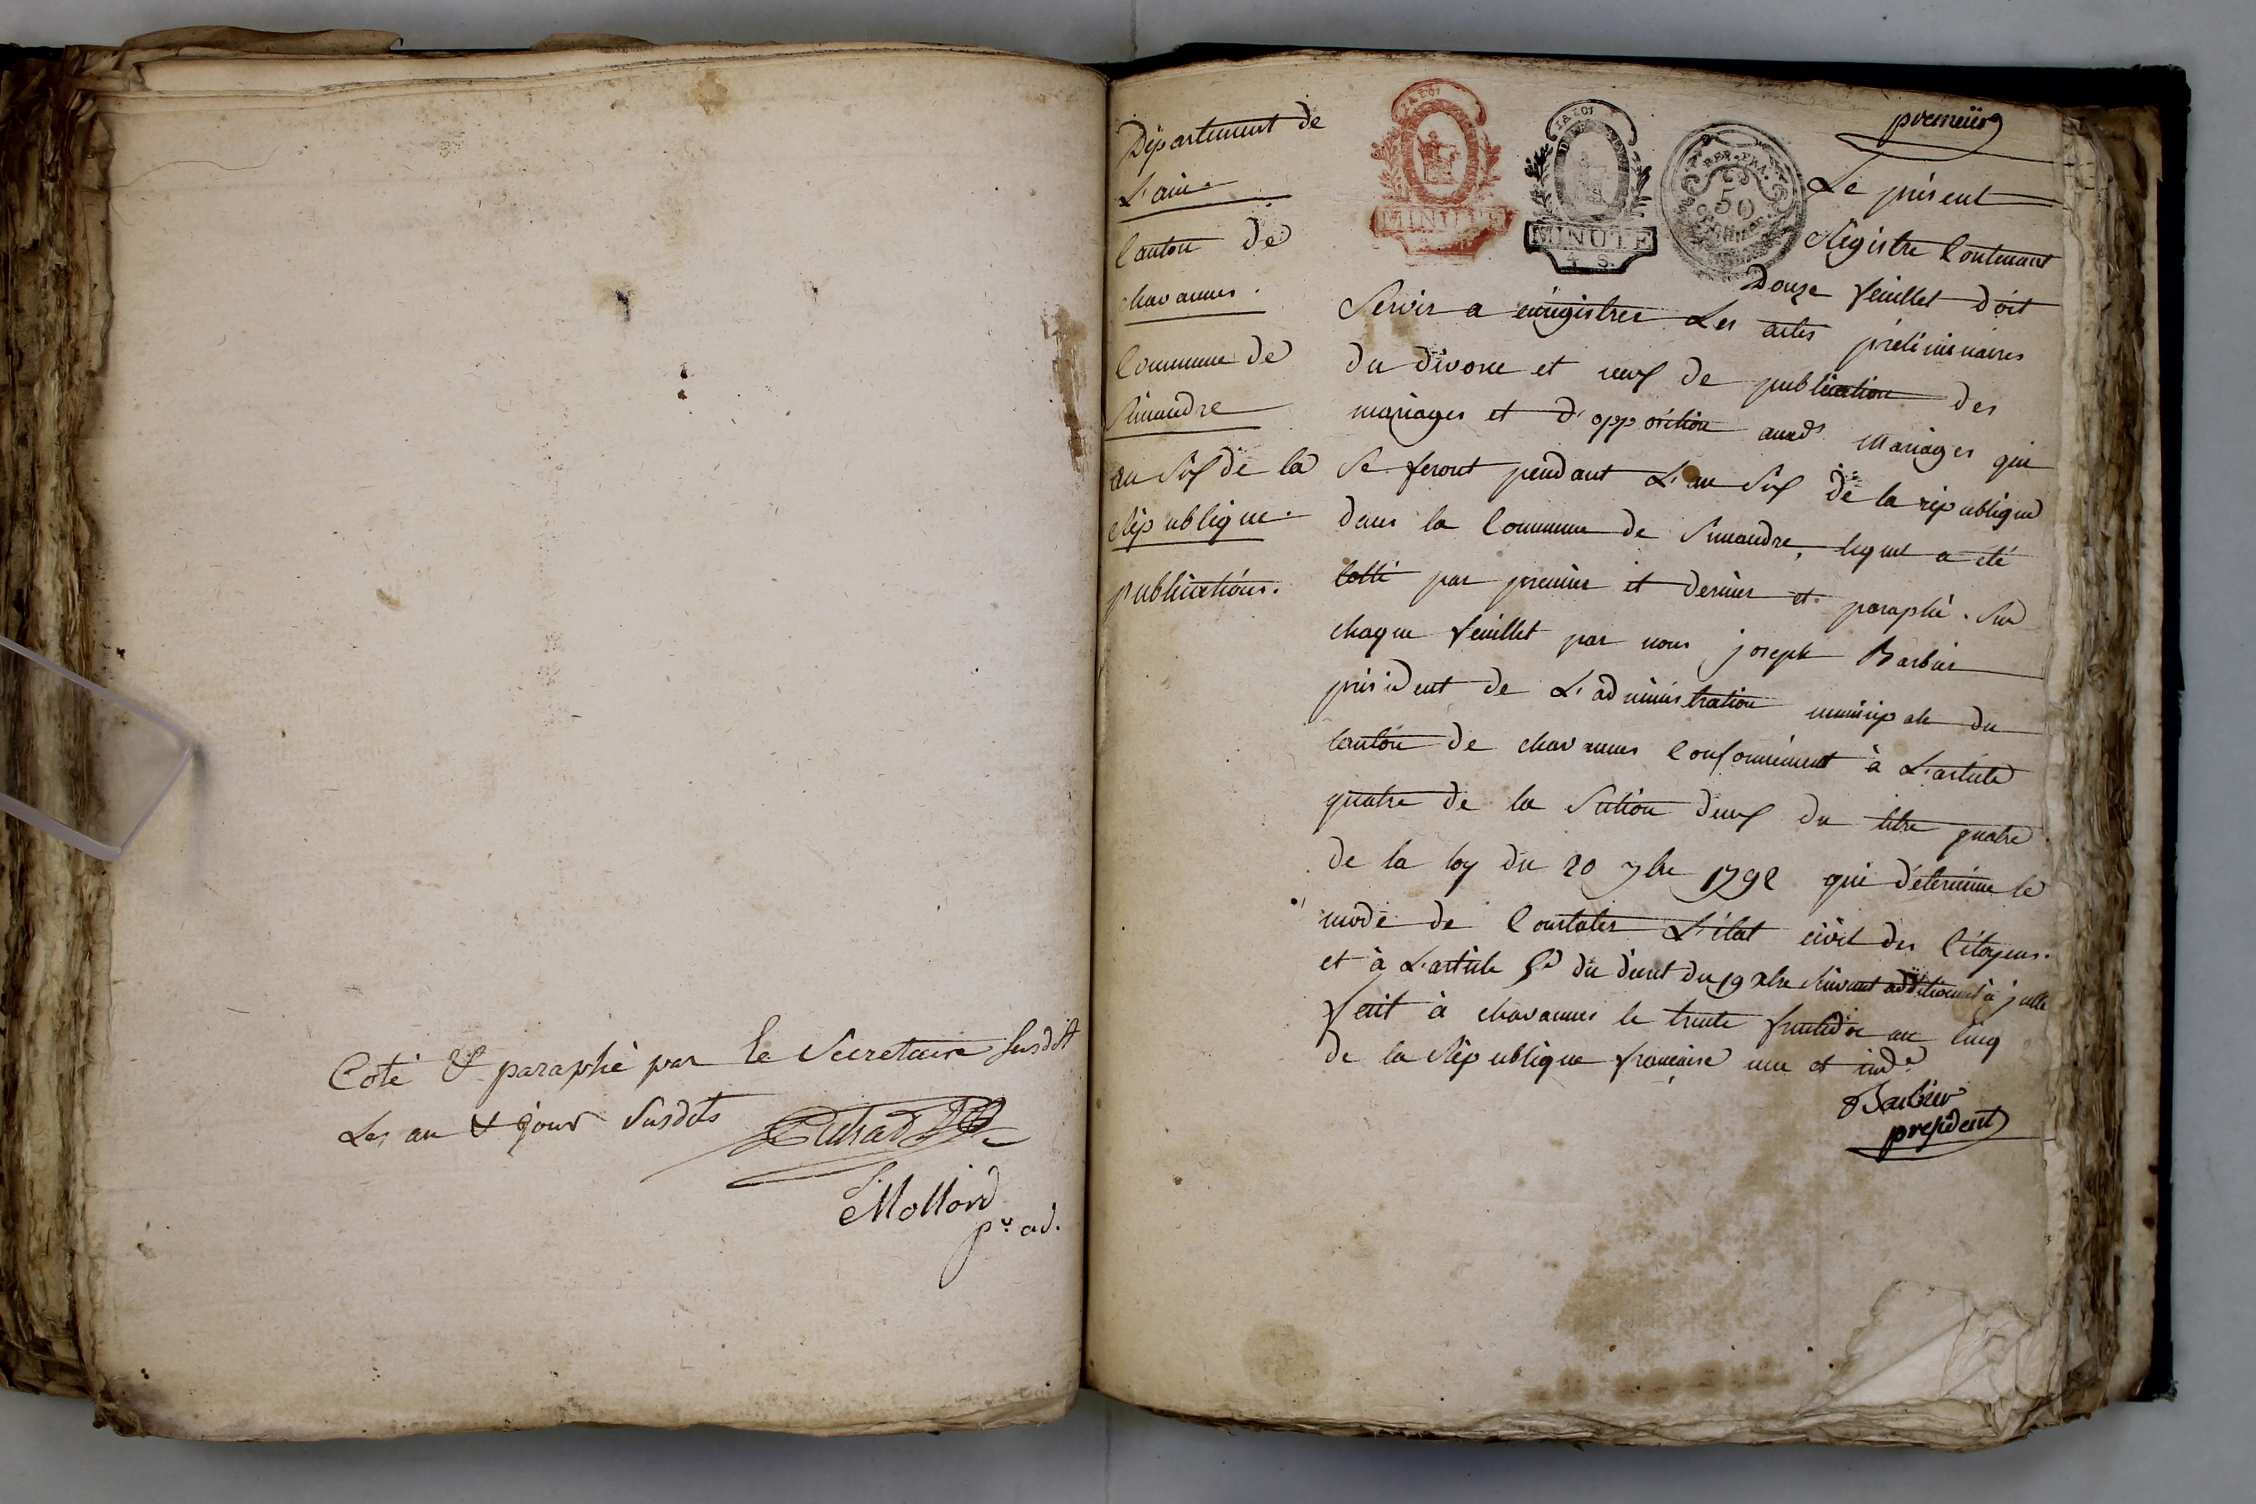 Coté & paraphé par le Secretaire susdit
Les an & jour susdits
Mollard
pr. ad.
Département de
L'ain.
Canton de
chavannes.
Commune de
Simandre
an Six de la
République.
publications.
LA LOI
MINUTE
LA LOI
MINUTE
4 S.
REP. FRA.
50
premier
Le présent
Régistre Contenant
Douze feuillet doit
Servir a enrégistrer Les actes préliminaires
du divorce et ceux de publication des
mariages et d'opposition auxds mariages qui
Se feront pendant L'an Six de la république
dans la Commune de Simandre, lequel a été
Collé par premier et dernier et paraphé. Sur
chaque feuillet par nous joseph Barbier
président de L'administration municipale du
Canton de chavannes Conformément à L'article
quatre de la Section deux du titre quatre
de la loy du 20 7bre 1792 qui détermine le
mode de Constater L'état civil des Citoyens.
et à L'article 5e du décret du 19 xbre Suivant additionnel à jcelle
fait à chavannes le trente fructidor an Cinq
de la République francaise une et inde.
Barbier
president